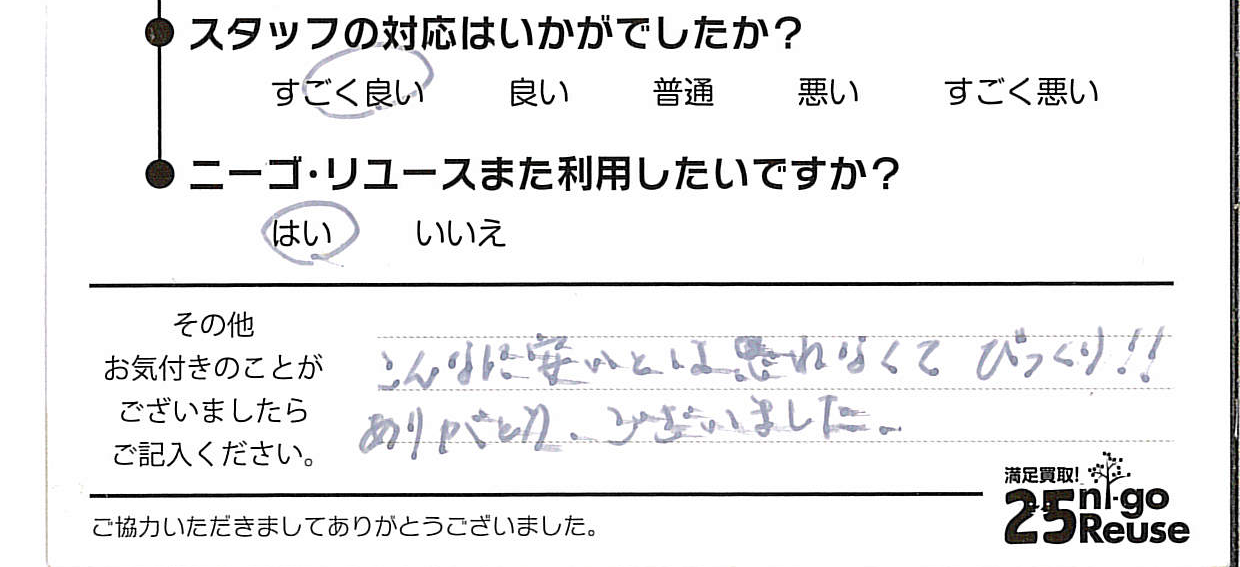 スタッフの対応はいかがでしたか?
すごく良い 良い 普通 悪い すごく悪い
ニーゴ・リユースまた利用したいですか?
はい いいえ
その他
お気付きのことが
ございましたら
ご記入ください。
こんなに安いとは思れなくて びっくり!!
ありがとう、ございました。
満足買取!
25 ni-go
Reuse
ご協力いただきましてありがとうございました。